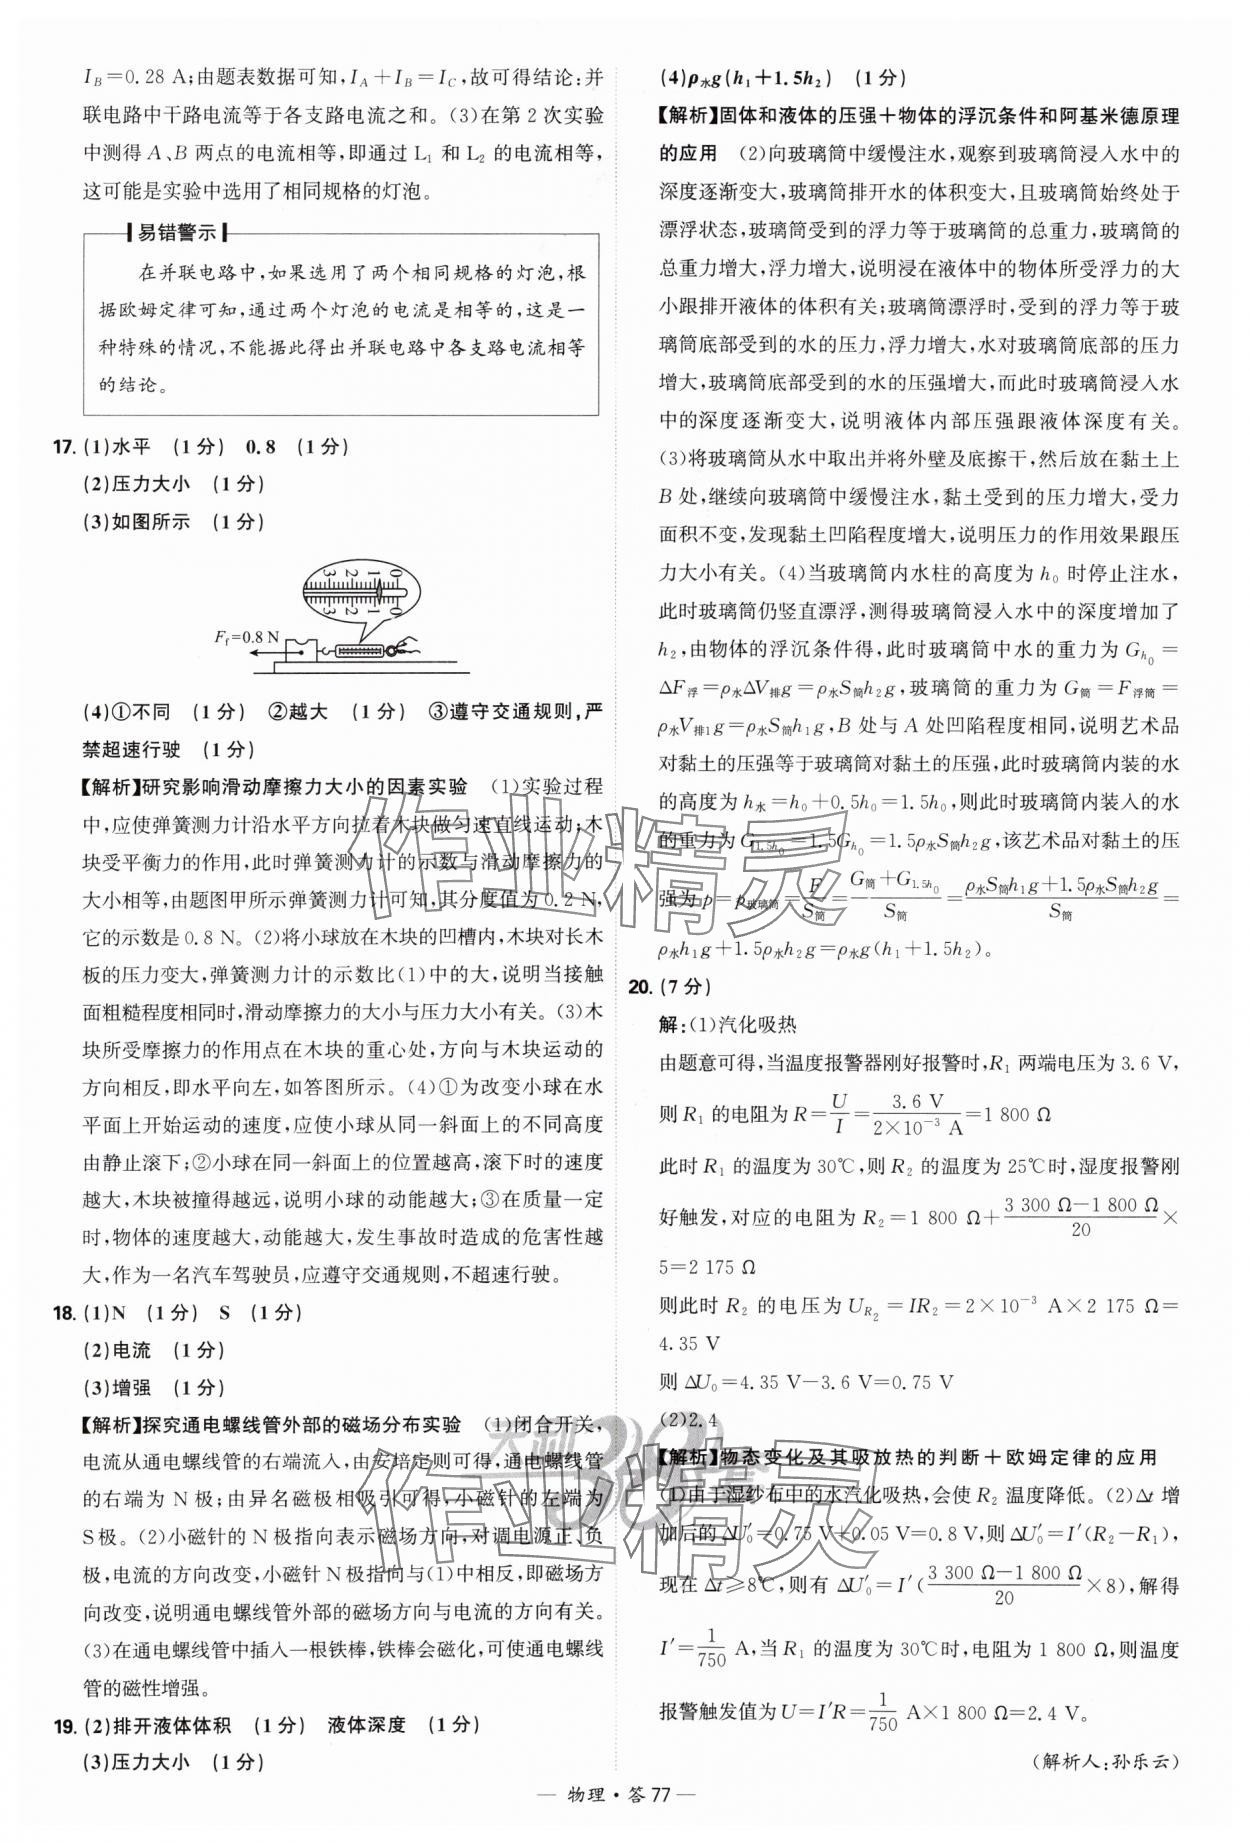 I_B=0.28 A;由题表数据可知,I_A+I_B=I_C,故可得结论:并
联电路中干路电流等于各支路电流之和。(3)在第 2 次实验
中测得 A、B 两点的电流相等,即通过 L₁ 和 L₂ 的电流相等,
这可能是实验中选用了相同规格的灯泡。
易错警示
在并联电路中,如果选用了两个相同规格的灯泡,根
据欧姆定律可知,通过两个灯泡的电流是相等的,这是一
种特殊的情况,不能据此得出并联电路中各支路电流相等
的结论。
17. (1)水平 (1 分) 0.8 (1 分)
(2)压力大小 (1 分)
(3)如图所示 (1 分)
3 2 1 0
3 2 1 0
F_f=0.8 N
(4)①不同 (1 分) ②越大 (1 分) ③遵守交通规则,严
禁超速行驶 (1 分)
【解析】研究影响滑动摩擦力大小的因素实验 (1)实验过程
中,应使弹簧测力计沿水平方向拉着木块做匀速直线运动;木
块受平衡力的作用,此时弹簧测力计的示数与滑动摩擦力的
大小相等,由题图甲所示弹簧测力计可知,其分度值为 0.2 N,
它的示数是 0.8 N。(2)将小球放在木块的凹槽内,木块对长木
板的压力变大,弹簧测力计的示数比(1)中的大,说明当接触
面粗糙程度相同时,滑动摩擦力的大小与压力大小有关。(3)木
块所受摩擦力的作用点在木块的重心处,方向与木块运动的
方向相反,即水平向左,如答图所示。(4)①为改变小球在水
平面上开始运动的速度,应使小球从同一斜面上的不同高度
由静止滚下;②小球在同一斜面上的位置越高,滚下时的速度
越大,木块被撞得越远,说明小球的动能越大;③在质量一定
时,物体的速度越大,动能越大,发生事故时造成的危害性越
大,作为一名汽车驾驶员,应遵守交通规则,不超速行驶。
18. (1)N (1 分) S (1 分)
(2)电流 (1 分)
(3)增强 (1 分)
【解析】探究通电螺线管外部的磁场分布实验 (1)闭合开关,
电流从通电螺线管的右端流入,由安培定则可得,通电螺线管
的右端为 N 极;由异名磁极相吸引可得,小磁针的左端为
S 极。(2)小磁针的 N 极指向表示磁场方向,对调电源正、负
极,电流的方向改变,小磁针 N 极指向与(1)中相反,即磁场方
向改变,说明通电螺线管外部的磁场方向与电流的方向有关。
(3)在通电螺线管中插入一根铁棒,铁棒会磁化,可使通电螺线
管的磁性增强。
19. (2)排开液体体积 (1 分) 液体深度 (1 分)
(3)压力大小 (1 分)
(4)ρ水g(h₁+1.5h₂) (1 分)
【解析】固体和液体的压强+物体的浮沉条件和阿基米德原理
的应用 (2)向玻璃筒中缓慢注水,观察到玻璃筒浸入水中的
深度逐渐变大,玻璃筒排开水的体积变大,且玻璃筒始终处于
漂浮状态,玻璃筒受到的浮力等于玻璃筒的总重力,玻璃筒的
总重力增大,浮力增大,说明浸在液体中的物体所受浮力的大
小跟排开液体的体积有关;玻璃筒漂浮时,受到的浮力等于玻
璃筒底部受到的水的压力,浮力增大,水对玻璃筒底部的压力
增大,玻璃筒底部受到的水的压强增大,而此时玻璃筒浸入水
中的深度逐渐变大,说明液体内部压强跟液体深度有关。
(3)将玻璃筒从水中取出并将外壁及底擦干,然后放在黏土上
B 处,继续向玻璃筒中缓慢注水,黏土受到的压力增大,受力
面积不变,发现黏土凹陷程度增大,说明压力的作用效果跟压
力大小有关。(4)当玻璃筒内水柱的高度为 h₀ 时停止注水,
此时玻璃筒仍竖直漂浮,测得玻璃筒浸入水中的深度增加了
h₂,由物体的浮沉条件得,此时玻璃筒中水的重力为 G_h₀=
ΔF浮=ρ水ΔV排g=ρ水S筒h₂g,玻璃筒的重力为 G筒=F浮筒=
ρ水V排1g=ρ水S筒h₁g,B 处与 A 处凹陷程度相同,说明艺术品
对黏土的压强等于玻璃筒对黏土的压强,此时玻璃筒内装的水
的高度为 h水=h₀+0.5h₀=1.5h₀,则此时玻璃筒内装入的水
的重力为 G_1.5h₀=1.5G_h₀=1.5ρ水S筒h₂g,该艺术品对黏土的压
强为 p=p玻璃筒=F/S筒=(G筒+G_1.5h₀)/S筒=(ρ水S筒h₁g+1.5ρ水S筒h₂g)/S筒=
ρ水h₁g+1.5ρ水h₂g=ρ水g(h₁+1.5h₂)。
20. (7 分)
解:(1)汽化吸热
由题意可得,当温度报警器刚好报警时,R₁ 两端电压为 3.6 V,
则 R₁ 的电阻为 R=U/I=3.6 V/(2×10⁻³ A)=1 800 Ω
此时 R₁ 的温度为 30℃,则 R₂ 的温度为 25℃时,湿度报警刚
好触发,对应的电阻为 R₂=1 800 Ω+(3 300 Ω−1 800 Ω)/20×
5=2 175 Ω
则此时 R₂ 的电压为 U_R₂=IR₂=2×10⁻³ A×2 175 Ω=
4.35 V
则 ΔU₀=4.35 V−3.6 V=0.75 V
(2)2.4
【解析】物态变化及其吸放热的判断+欧姆定律的应用
(1)由于湿纱布中的水汽化吸热,会使 R₂ 温度降低。(2)Δt 增
加后的 ΔU₀′=0.75 V+0.05 V=0.8 V,则 ΔU₀′=I′(R₂−R₁),
现在 Δt⩾8℃,则有 ΔU₀′=I′((3 300 Ω−1 800 Ω)/20×8),解得
I′=1/750 A,当 R₁ 的温度为 30℃时,电阻为 1 800 Ω,则温度
报警触发值为 U=I′R=1/750 A×1 800 Ω=2.4 V。
(解析人:孙乐云)
— 物理·答 77 —
作业精灵
作业精灵
天利38套